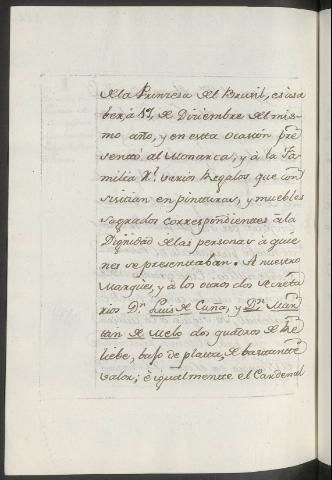 de la Princesa del Brasil, es á sa
ber, á 17, de Diziembre del mis-
mo año, y en esta ocasión pre
sentó al Monarca, y á la Fa-
milia Rl. varios Regalos que con
sistian en pinturas, y muebles
sagrados correspondientes á la
Dignidad de las personas á quie
nes se presentaban. A nuestro
Marques, y á los otros dos Secreta
rios Dn. Luis de Cuña, y Dn. Mar
tin de Melo dos quadros de Re
liebe, bajo de plata, de bastante
valor; é igualmente el Cardenal